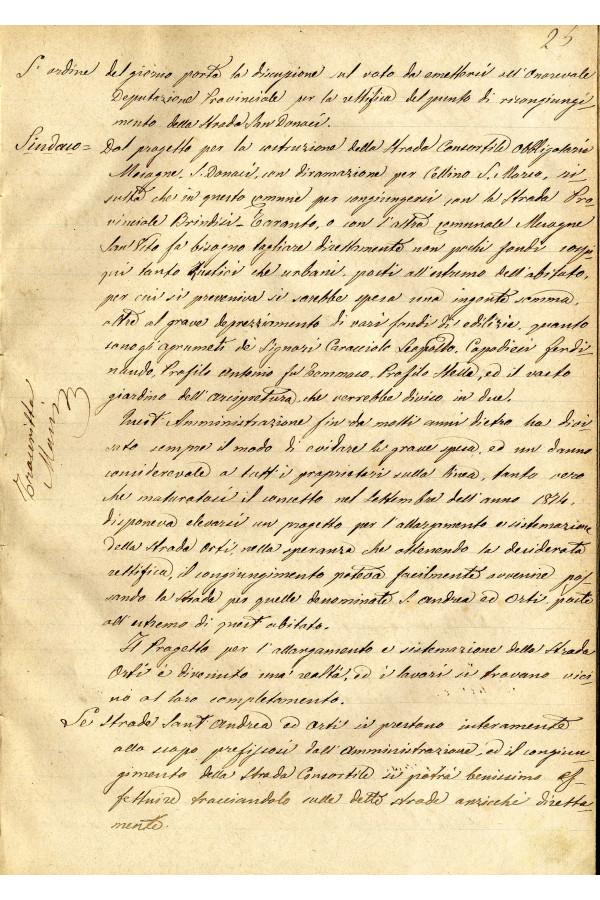 25
L'ordine del giorno porta la discuzione sul voto da emettersi all'Onorevale
Deputazione Provinciale per la rettifica del punto di ricongiungi=
mento della Strada San Donaci.
Sindaco = Dal progetto per la costruzione della Strada Consortile Obbligatoria
Mesagne, S. Donaci, con diramazione per Cellino S. Marco, si
che in questo comune per congiungersi con la Strada Pro
vinciale Brindisi-Taranto, o con l'altra comunale Mesagne
San Vito fa bisogno tagliare direttamente non pochi fondi
qui tanto rustici che urbani, posti all'estremo dell'abitato,
per cui si preveniva si sarebbe spesa una ingente somma,
oltre al grave deprezziamento di vari fondi di edilizie, quanto
sono gli agrumeti dei Signori Caracciolo Leopoldo, Capodieci Ferdi
nando, Profilo Antonio fu Tommaso, Profilo Stella, ed il vasto
giardino dell'Arcipretura, che verrebbe diviso in due.
Quest'Amministrazione fin da molti anni dietro ha divi
sato sempre il modo di evitare la grave spesa, ed un danno
considerevole a tutt'i proprietari sulla linea, tanto vero
che maturatosi il concetto nel Settembre dell'anno 1874,
disponeva elevarsi un progetto per l'allargamento e sistemazione
della Strada Orti, nella speranza che ottenendo la desiderata
rettifica, il congiungimento poteva facilmente avvenire pas
sando la strada per quelle denominate S. Andrea ed Orti, poste
all'estremo di quest'abitato.
Il Progetto per l'allargamento e sistemazione della Strada
Orti è divenuto una realtà, ed i lavori si trovano vici
ni al loro completamento.
Le Strade Sant'Andrea ed Orti si prestano interamente
allo scopo prefissosi dall'Amministrazione, ed il congiun
gimento della Strada Consortile si potrà benissimo ef
fettuire tracciandolo sulle dette strade anzicchè diretta
mente.
Trascritto